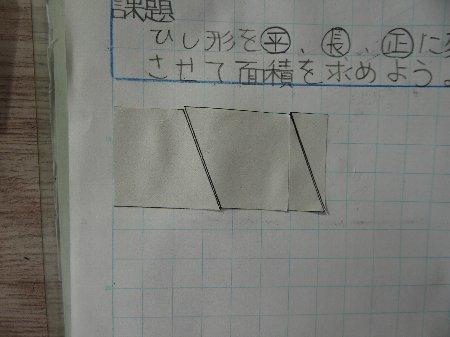 課題
ひし形を㊤、㊤、㊣に
させて面積を求めよう